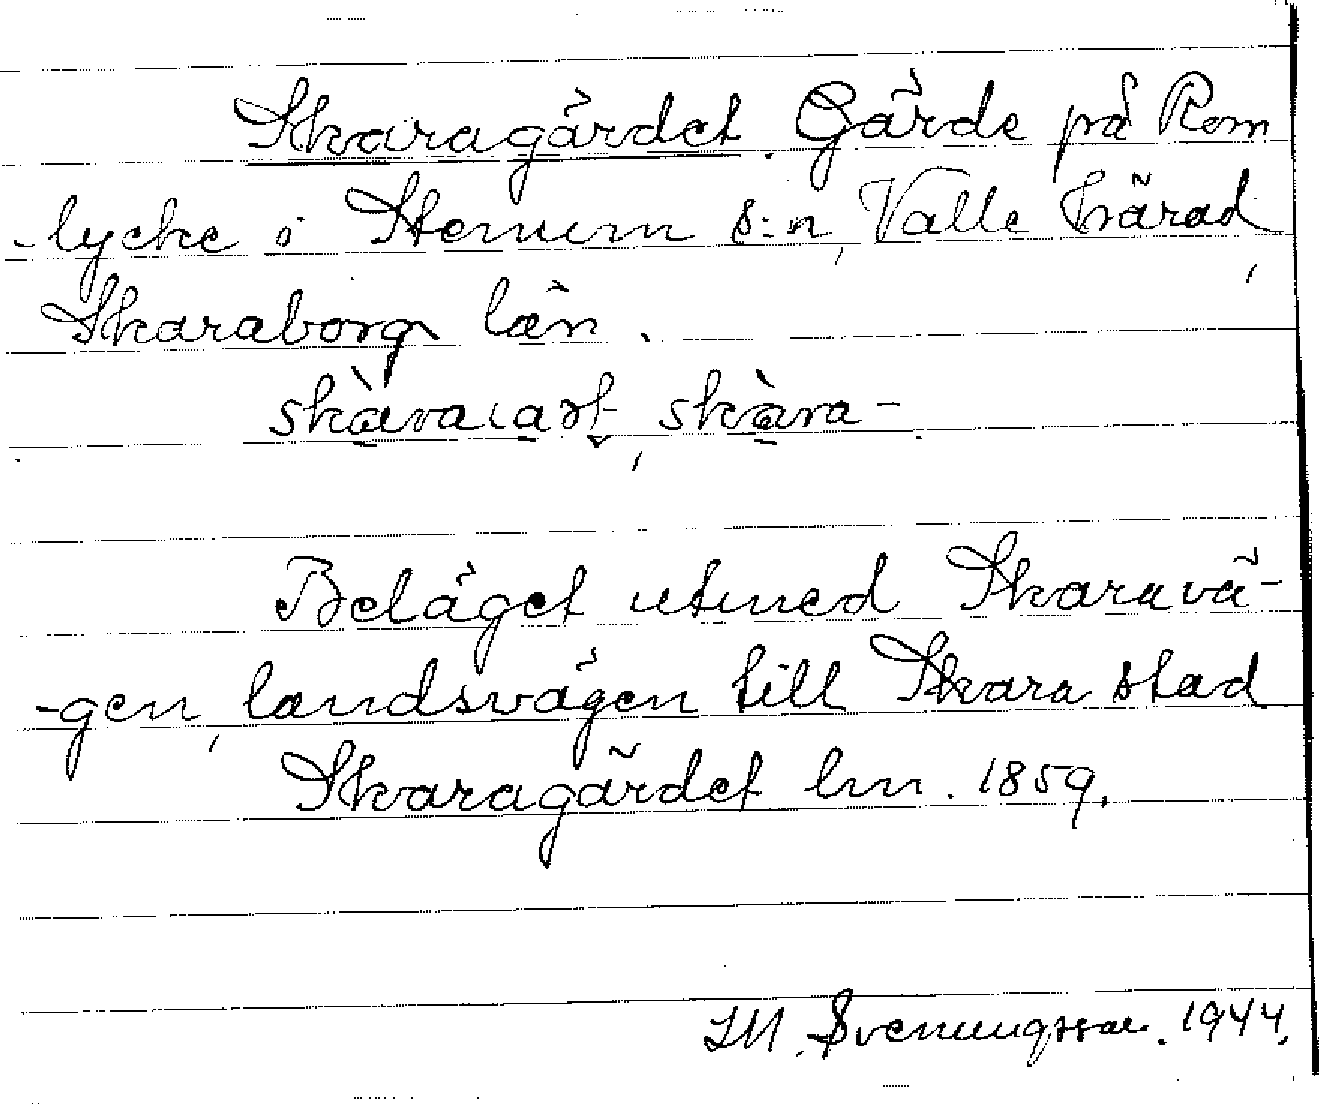 Skaragärdet. Gärde på Rom
-lycke i Stenum s:n, Valle härad,
Skaraborgs län.
skàra-, skàra-
Beläget utmed Skaravä-
-gen, landsvägen till Skara stad
Skaragärdet hm. 1859.
I.M. Svenungsson. 1944.